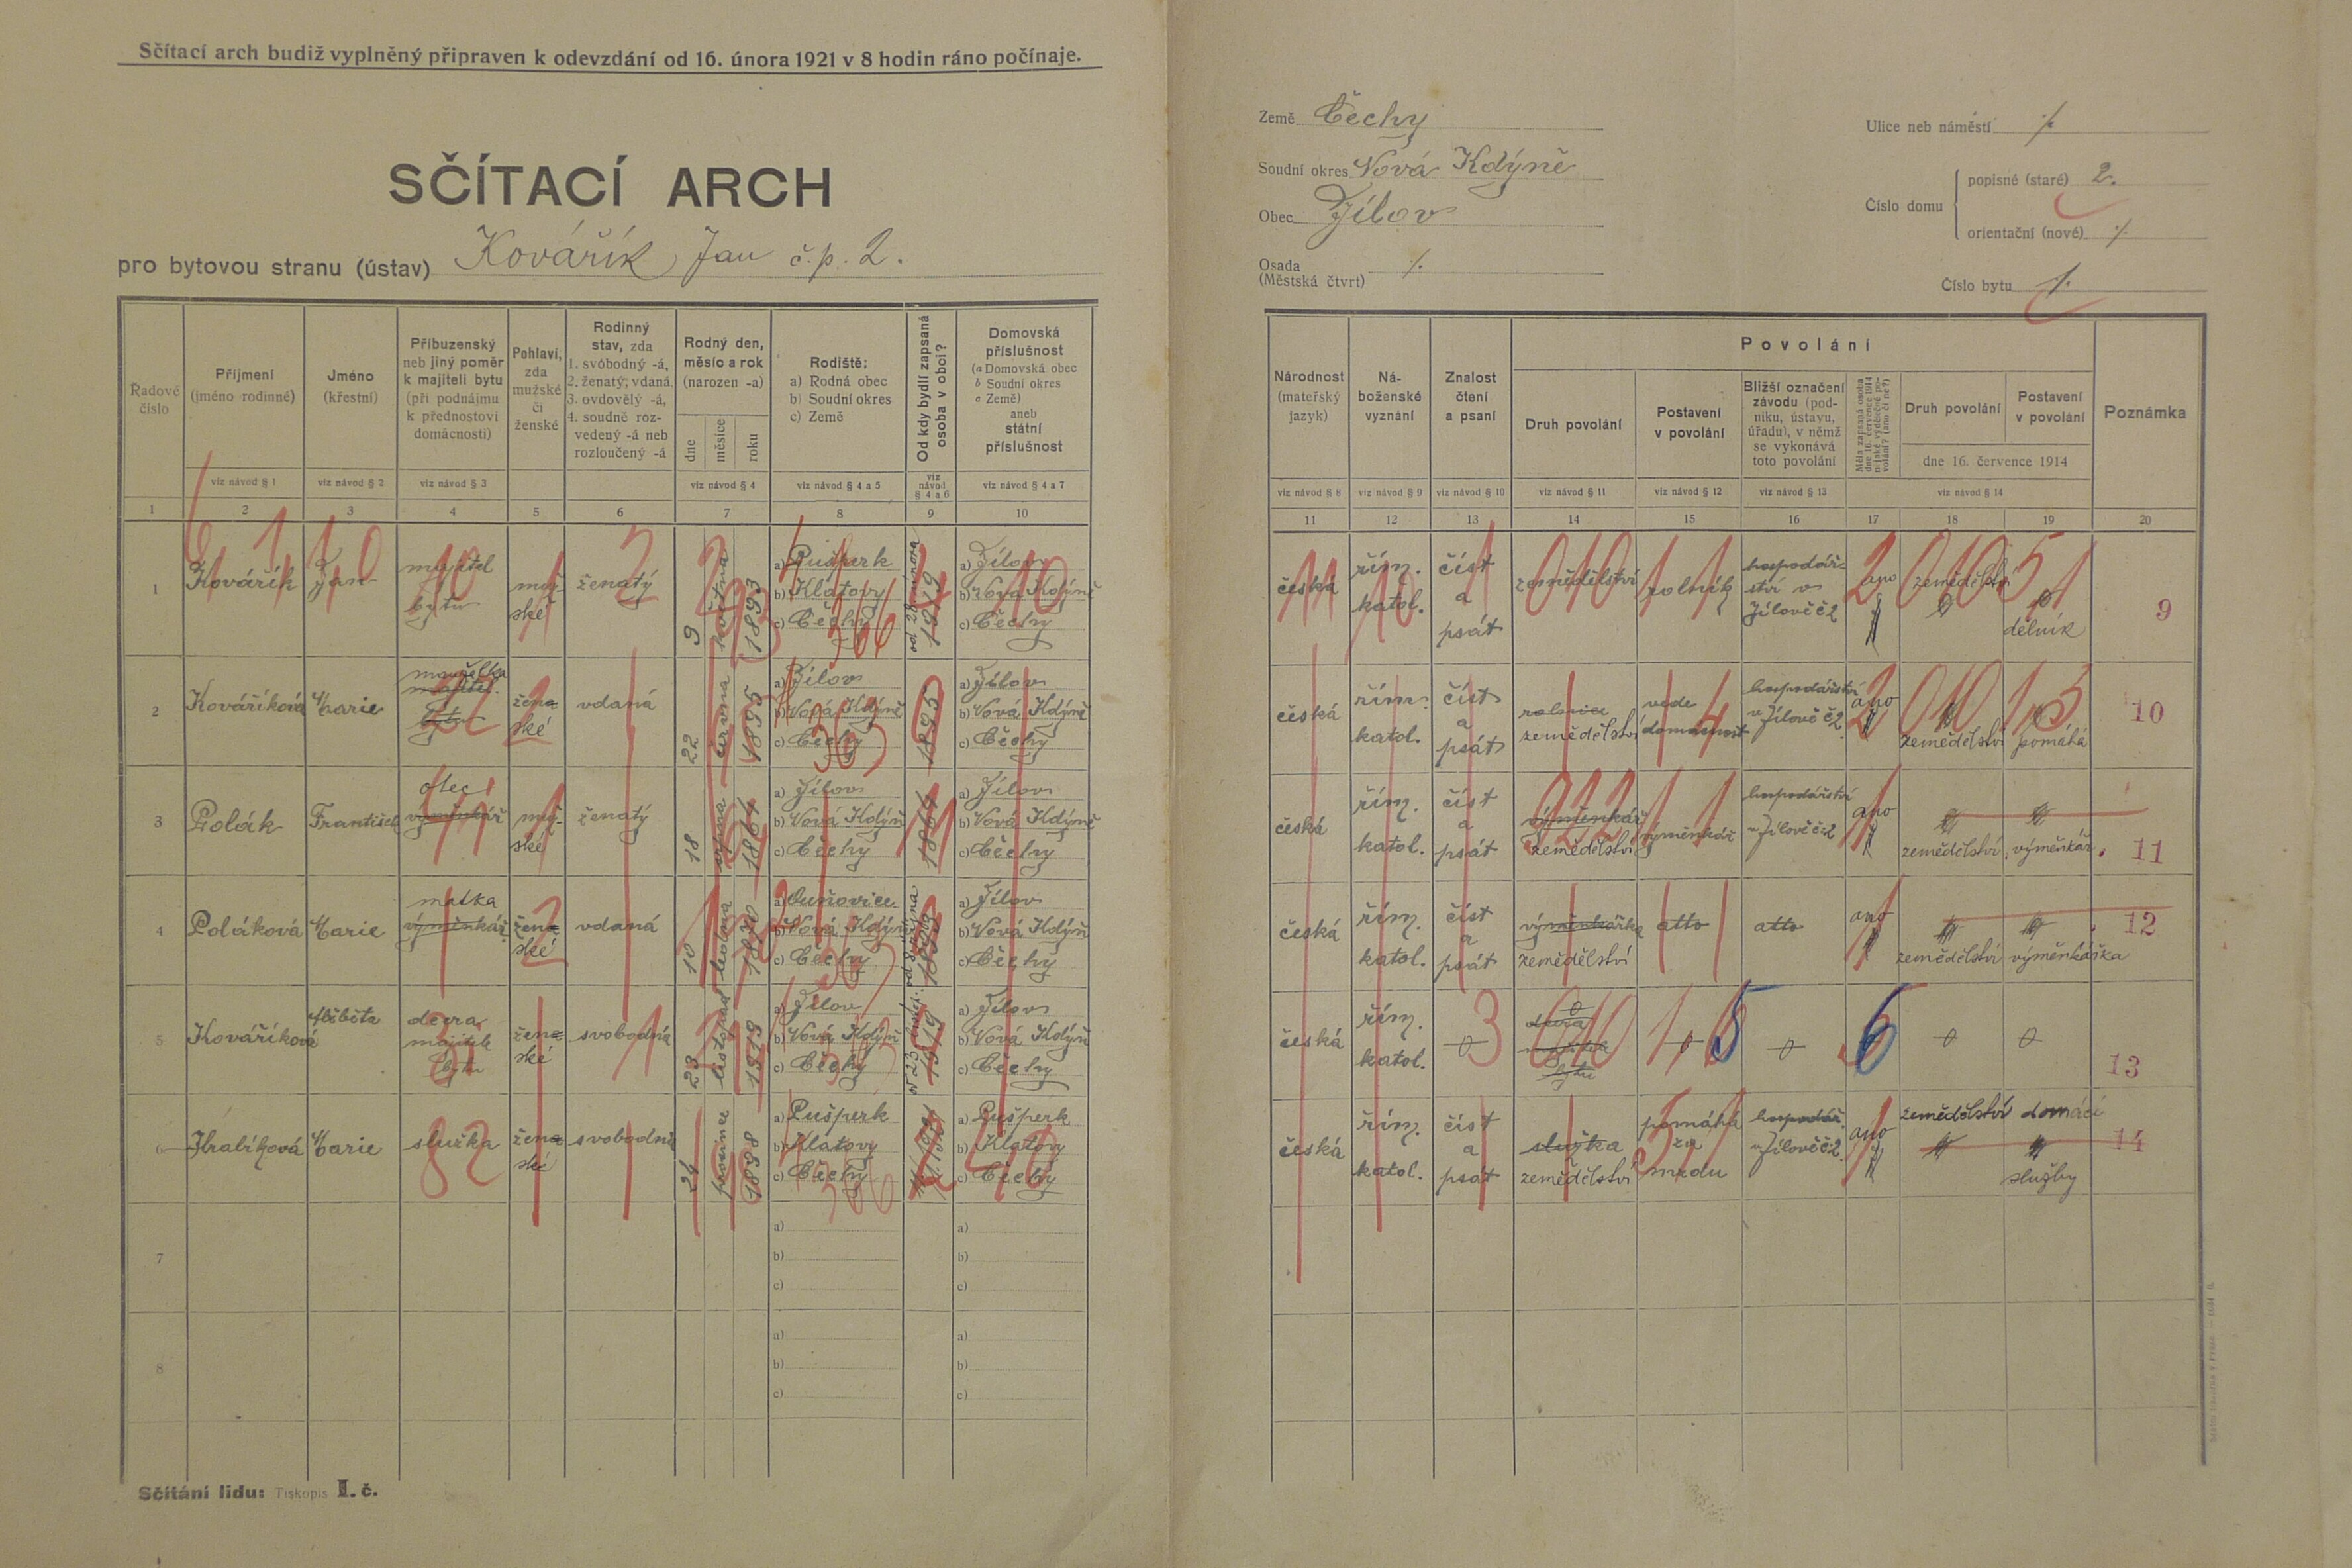 Sčítací arch budiž vyplněný připraven k odevzdání od 16. února 1921 v 8 hodin ráno počínaje.
SČÍTACÍ ARCH
pro bytovou stranu (ústav) Kovářík Jan č.p. 2.
Země Čechy
Soudní okres Nová Kdýně
Obec Jílov
Osada
(Městská čtvrt) ⁒
Ulice neb náměstí ⁒
Číslo domu
popisné (staré) 2.
orientační (nové) ⁒
Číslo bytu 1.
Řadové číslo
Příjmení
(jméno rodinné)
viz návod § 1
Jméno
(křestní)
viz návod § 2
Příbuzenský
neb jiný poměr
k majiteli bytu
(při podnájmu
k přednostovi
domácnosti)
viz návod § 3
Pohlaví,
zda
mužské
či
ženské
Rodinný
stav, zda
1. svobodný -á,
2. ženatý, vdaná,
3. ovdovělý -á,
4. soudně roz-
vedený -á neb
rozloučený -á
Rodný den,
měsíc a rok
(narozen -a)
dne
měsíce
roku
viz návod § 4
Rodiště:
a) Rodná obec
b) Soudní okres
c) Země
viz návod § 4 a 5
Od kdy bydlí zapsaná
osoba v obci?
viz
návod
§ 4 a 6
Domovská
příslušnost
(a Domovská obec
b Soudní okres
c Země)
aneb
státní
příslušnost
viz návod § 4 a 7
Národnost
(mateřský
jazyk)
viz návod § 8
Ná-
boženské
vyznání
viz návod § 9
Znalost
čtení
a psaní
viz návod § 10
Povolání
Druh povolání
viz návod § 11
Postavení
v povolání
viz návod § 12
Bližší označení
závodu (pod-
niku, ústavu,
úřadu), v němž
se vykonává
toto povolání
viz návod § 13
Měla zapsaná osoba
dne 16. července 1914
nějaké výdělečné po-
volání? (ano či ne?)
Druh povolání
Postavení
v povolání
dne 16. července 1914
viz návod § 14
Poznámka
1 2 3 4 5 6 7 8 9 10
11 12 13 14 15 16 17 18 19 20
1 Kovářík Jan majitel bytu muž-ské ženatý 9 května 1893
a) Pušperk
b) Klatovy
c) Čechy
a) Jílov
b) Nová Kdýně
c) Čechy
česká řím. katol. číst a psát zemědělství rolník hospodář-ství v Jílově č 2 ano zemědělství dělník 9
2 Kováříková Marie manželka žen-ské vdaná 22 června 1895
a) Jílov
b) Nová Kdýně
c) Čechy
1895
a) Jílov
b) Nová Kdýně
c) Čechy
česká řím. katol. číst a psát rolnice zemědělství vede domácnost hospodářství v Jílově č 2 ano zemědělství pomáhá 10
3 Polák František otec výměnkář muž-ské ženatý 18 1864
a) Jílov
b) Nová Kdýň
c) Čechy
1864
a) Jílov
b) Nová Kdýně
c) Čechy
česká řím. katol. číst a psát výměnkář zemědělství výměnkář hospodářství v Jílově č 2 ano zemědělství výměnkář 11
4 Poláková Marie matka výměnkář žen-ské vdaná 10 ledna
b) Nová Kdýň
c) Čechy
a) Jílov
b) Nová Kdýň
c) Čechy
česká řím. katol. číst a psát výměnkářka zemědělství atto atto ano zemědělství výměnkářka 12
5 Kováříková Alžběta dcera majitele bytu žen-ské svobodná 23 listopad 1919
a) Jílov
b) Nová Kdýň
c) Čechy
a) Jílov
b) Nová Kdýň
c) Čechy
česká řím. katol. 0 dcera majitele bytu 0 0 0 0 13
6 Králíková Marie služka žen-ské svobodná 24 prosince 1898
a) Pušperk
b) Klatovy
c) Čechy
a) Pušperk
b) Klatovy
c) Čechy
česká řím. katol. číst a psát služka zemědělství pomáhá za mzdu hospodář. v Jílově č 2 ano zemědělství domácí služby 14
7
a)
b)
c)
a)
b)
c)
8
a)
b)
c)
a)
b)
c)
Sčítání lidu: Tiskopis I. č.